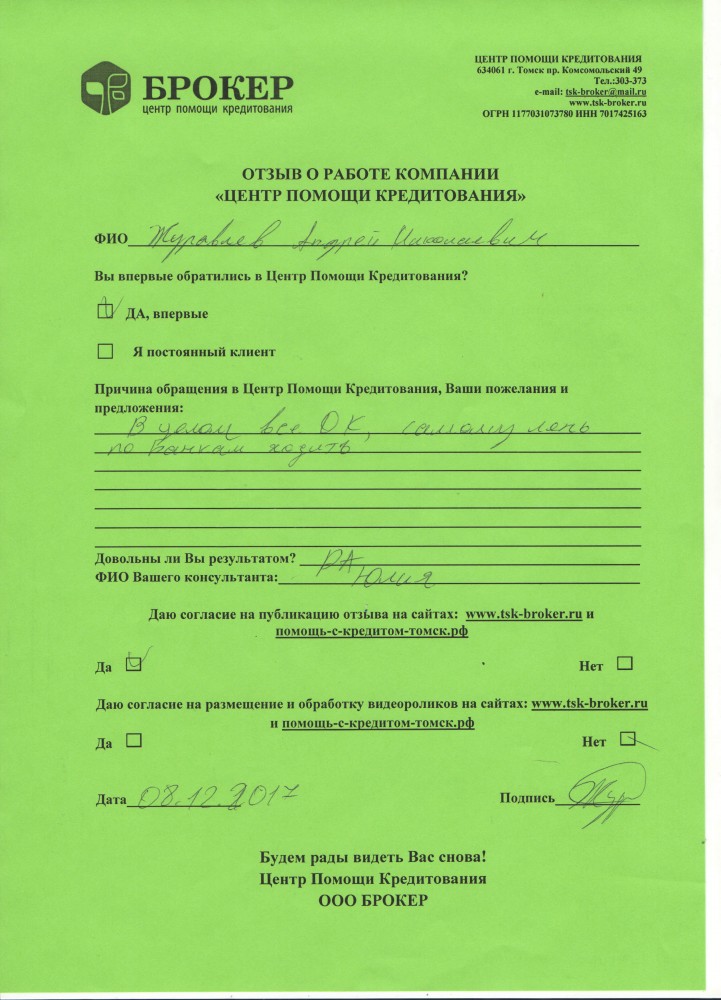 БРОКЕР
центр помощи кредитования
ЦЕНТР ПОМОЩИ КРЕДИТОВАНИЯ
634061 г. Томск пр. Комсомольский 49
Тел.:303-373
e-mail: tsk-broker@mail.ru
www.tsk-broker.ru
ОГРН 1177031073780 ИНН 7017425163
ОТЗЫВ О РАБОТЕ КОМПАНИИ
«ЦЕНТР ПОМОЩИ КРЕДИТОВАНИЯ»
ФИО Журавлев Андрей Николаевич
Вы впервые обратились в Центр Помощи Кредитования?
ДА, впервые
Я постоянный клиент
Причина обращения в Центр Помощи Кредитования, Ваши пожелания и
предложения:
В целом все ОК, самому лень
по банкам ходить
Довольны ли Вы результатом? ДА
ФИО Вашего консультанта: Юлия
Даю согласие на публикацию отзыва на сайтах: www.tsk-broker.ru и
помощь-с-кредитом-томск.рф
Да Нет
Даю согласие на размещение и обработку видеороликов на сайтах: www.tsk-broker.ru
и помощь-с-кредитом-томск.рф
Да Нет
Дата 08.12.2017 Подпись Жур
Будем рады видеть Вас снова!
Центр Помощи Кредитования
ООО БРОКЕР